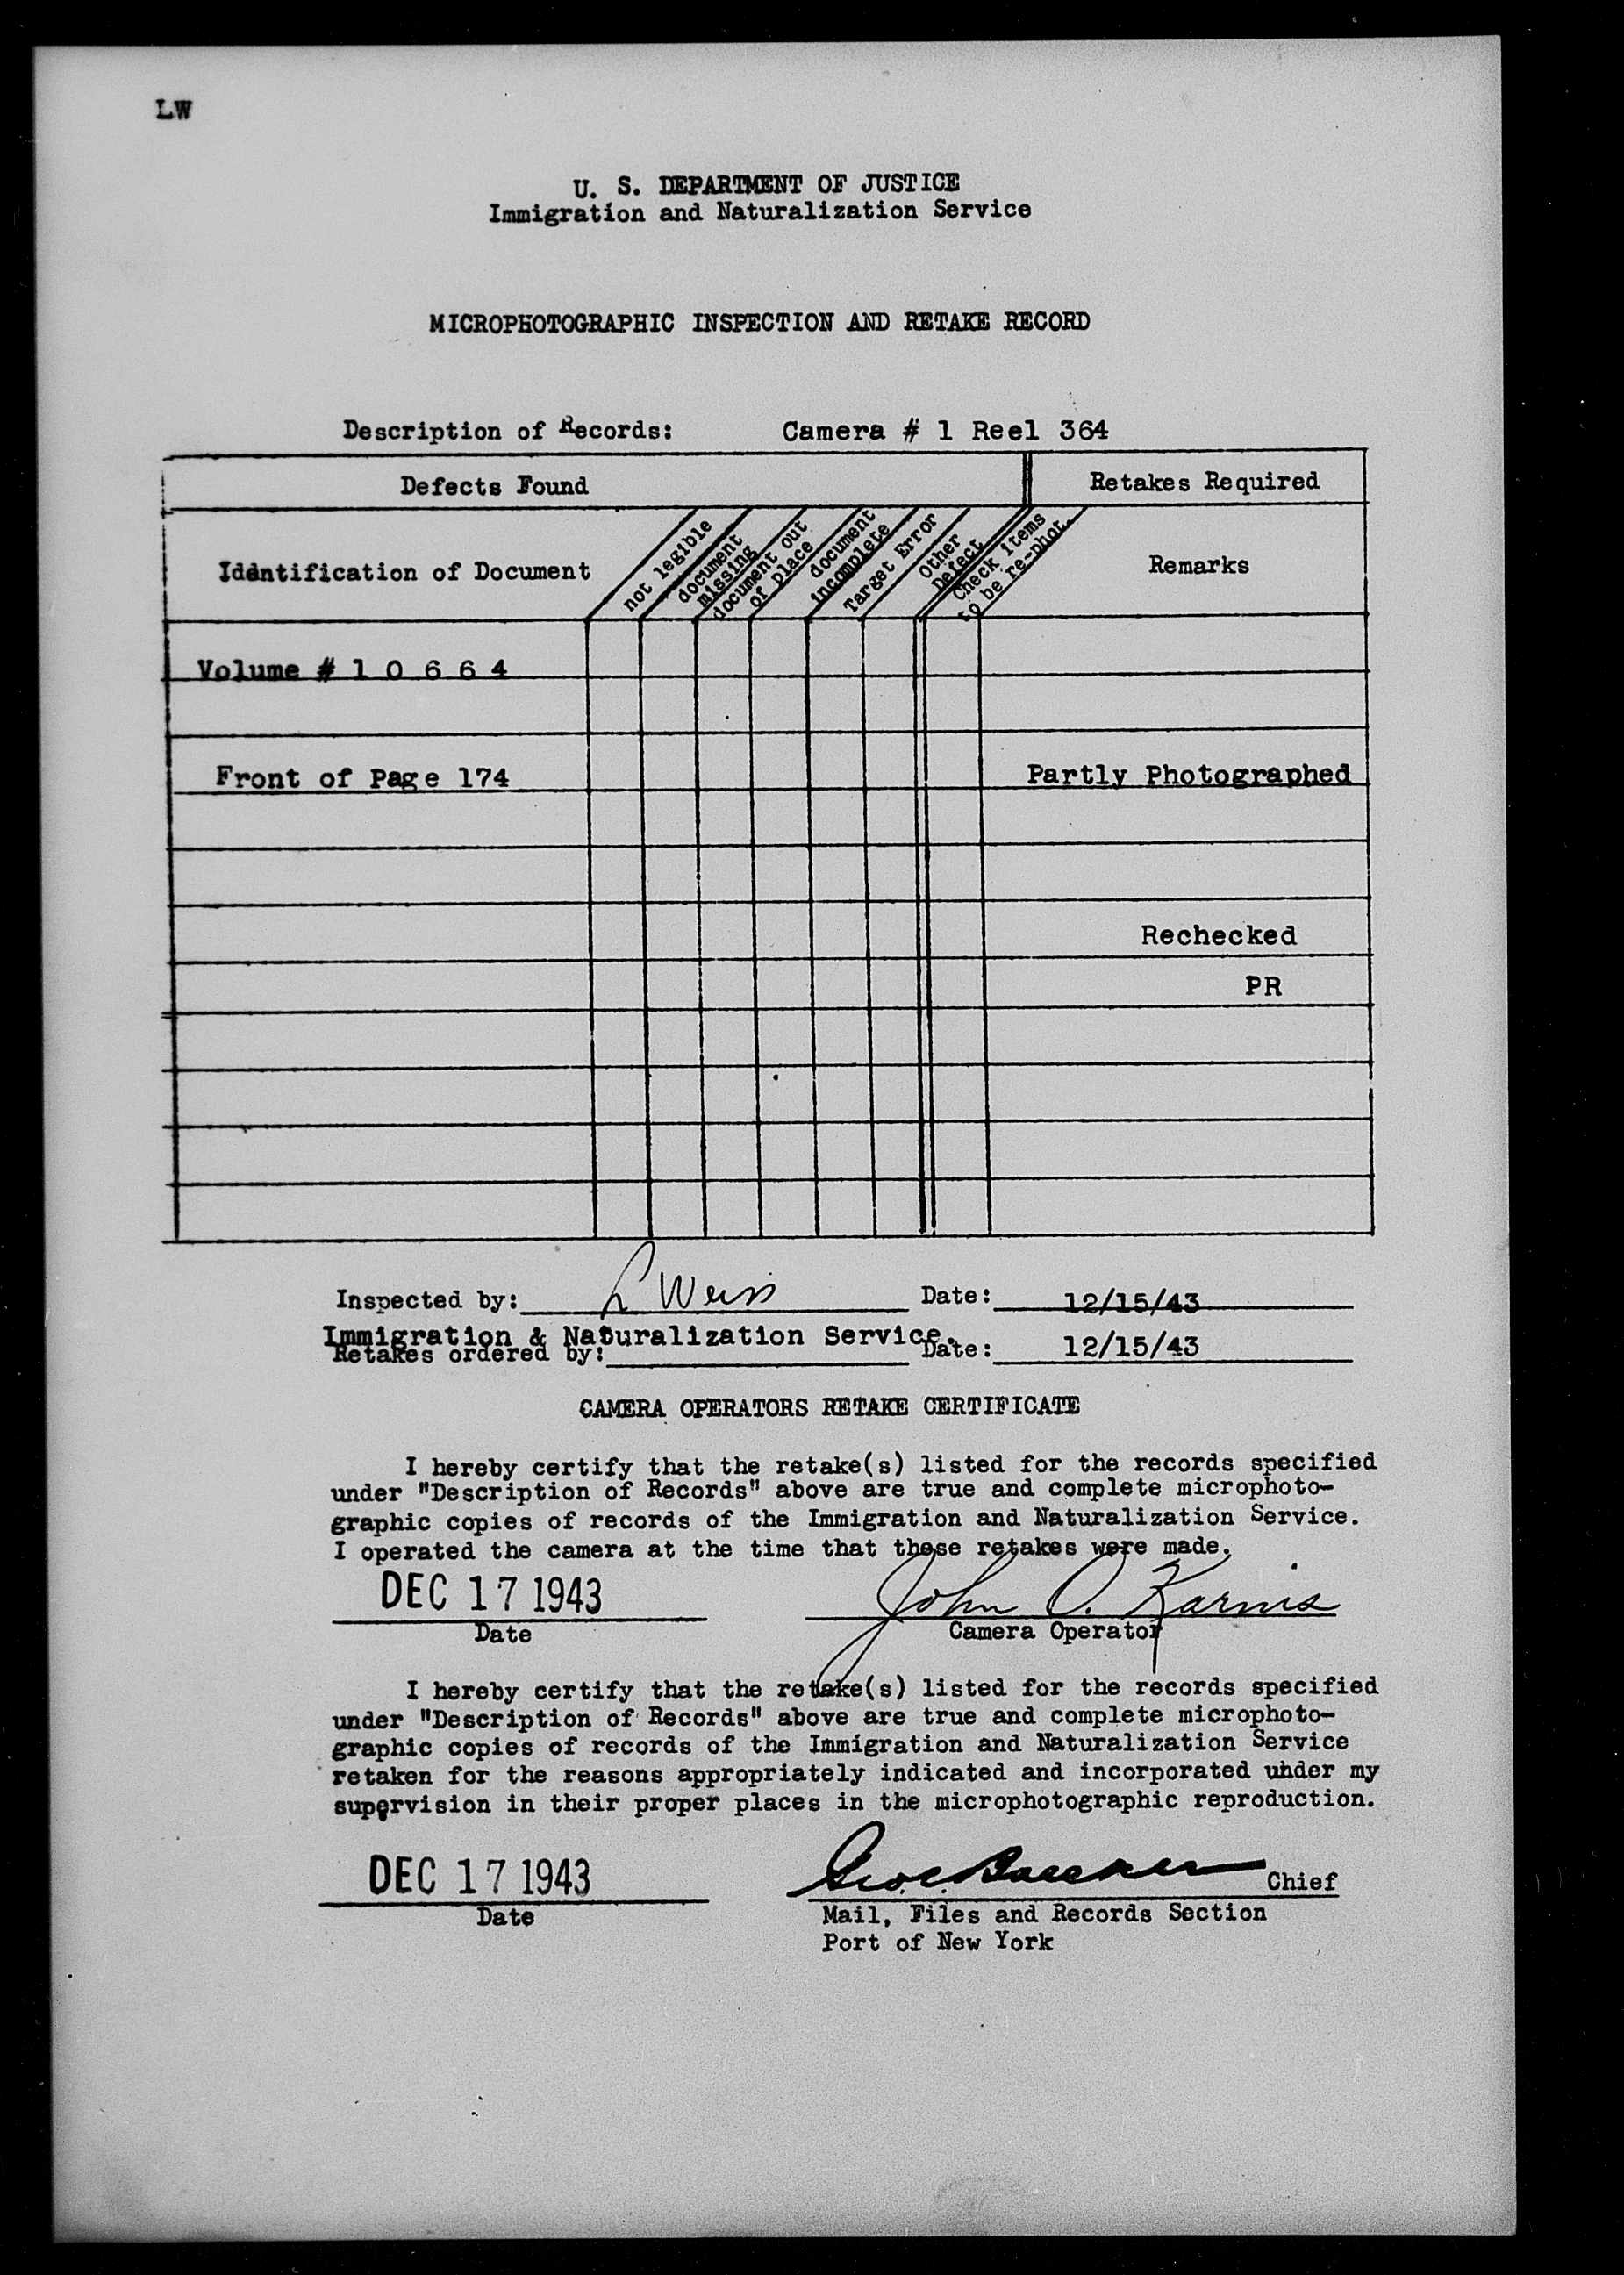 LW
U. S. DEPARTMENT OF JUSTICE
Immigration and Naturalization Service
MICROPHOTOGRAPHIC INSPECTION AND RETAKE RECORD
Description of Records: Camera # 1 Reel 364
Defects Found Retakes Required
Identification of Document
not legible
document missing
document out of place
document incomplete
Target Error
Other Defect
Check items to be re-phot.
Remarks
Volume # 1 0 6 6 4
Front of Page 174 Partly Photographed
Rechecked
PR
Inspected by: L Weiss Date: 12/15/43
Immigration & Naturalization Service.
Retakes ordered by: Date: 12/15/43
CAMERA OPERATORS RETAKE CERTIFICATE
I hereby certify that the retake(s) listed for the records specified
under "Description of Records" above are true and complete microphoto-
graphic copies of records of the Immigration and Naturalization Service.
I operated the camera at the time that these retakes were made.
DEC 17 1943 John O.
Date Camera Operator
I hereby certify that the retake(s) listed for the records specified
under "Description of Records" above are true and complete microphoto-
graphic copies of records of the Immigration and Naturalization Service
retaken for the reasons appropriately indicated and incorporated under my
supervision in their proper places in the microphotographic reproduction.
DEC 17 1943 Chief
Date Mail, Files and Records Section
Port of New York